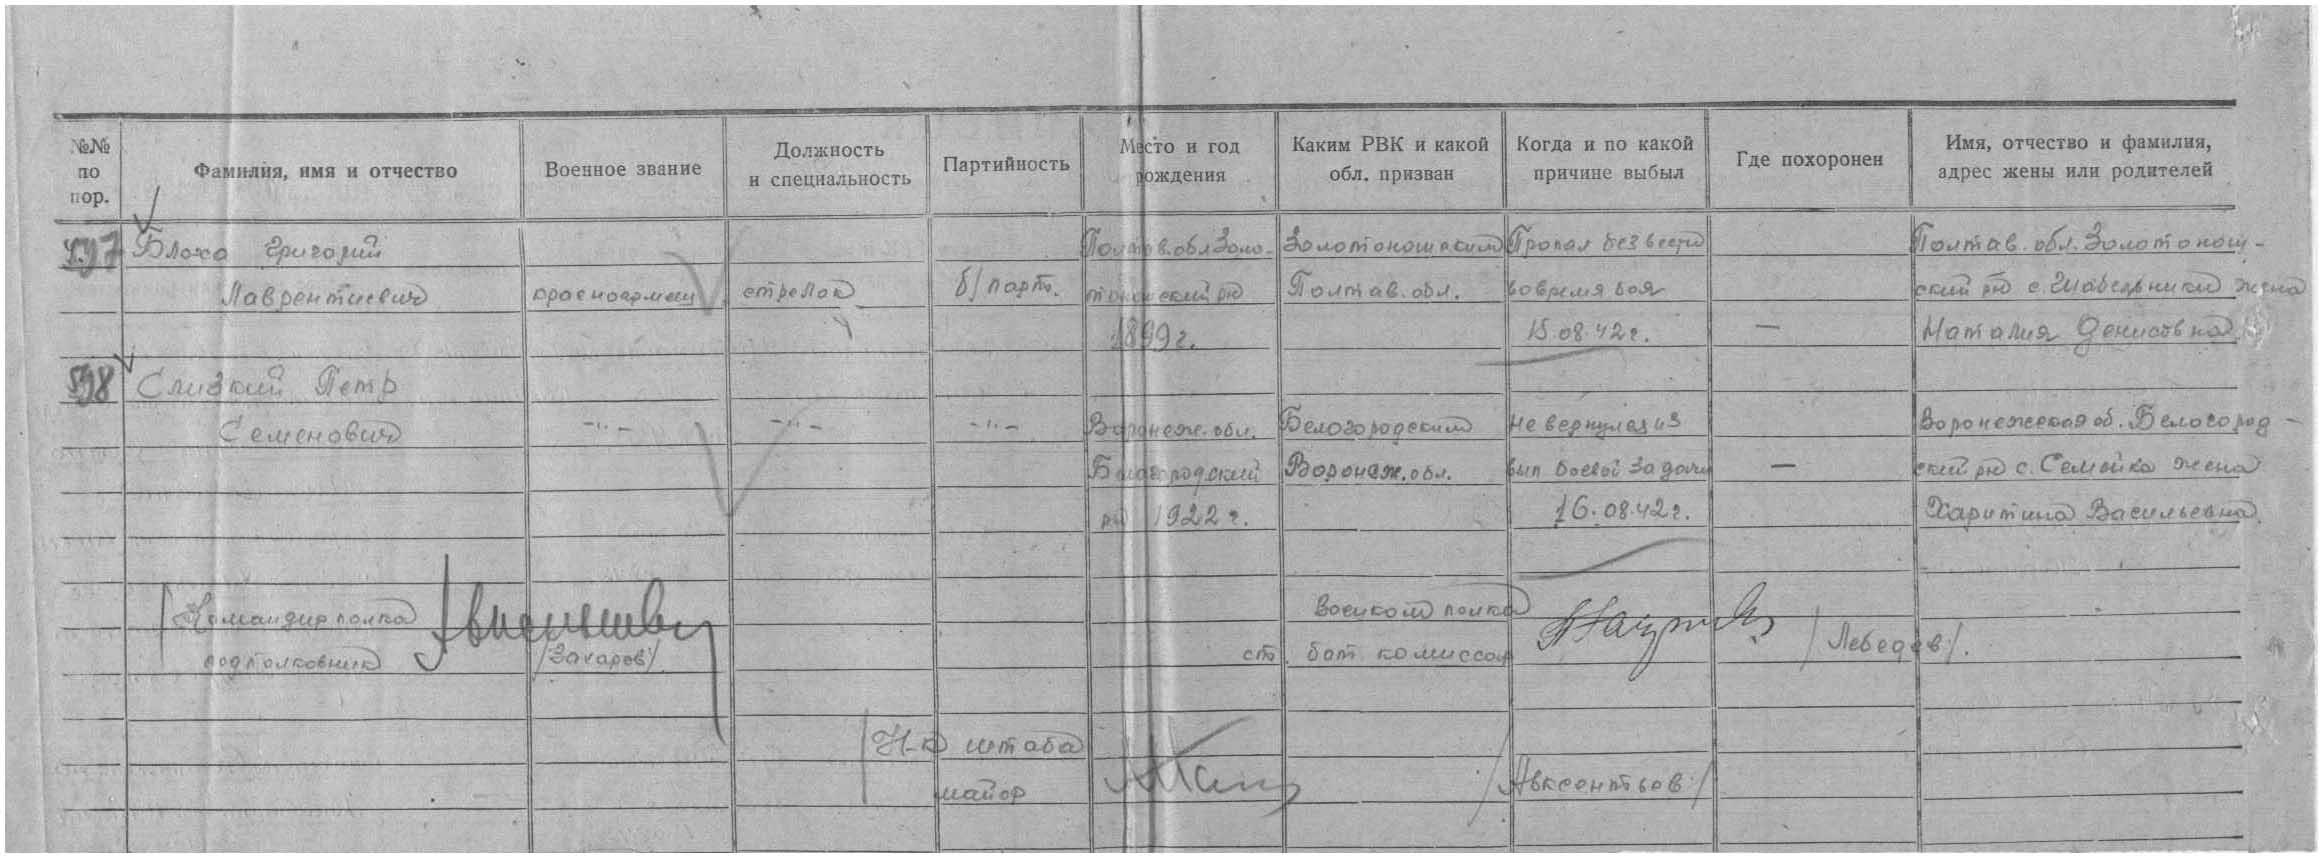 №№ по пор.
Фамилия, имя и отчество
Военное звание
Должность и специальность
Партийность
Место и год рождения
Каким РВК и какой обл. призван
Когда и по какой причине выбыл
Где похоронен
Имя, отчество и фамилия, адрес жены или родителей
597 Блоха Григорий Полтав. обл Золо- Золотоношским Пропал без вести Полтав. обл. Золотонош-
Лаврентиевич красноармеец стрелок б/парт. тоношский рн Полтав. обл. вовремя боя ский рн с. Шабельники жена
1899 г. 15.08.42 г. — Наталия Денисовна
598 Слизкий Петр
Семенович -"- -"- -"- Воронеж. обл. Белогородским не вернулся из Воронежская об. Белогород-
Белогородский Воронеж. обл. вып боевой задачи — ский рн с. Семейка жена
рн 1922 г. 16.08.42 г. Харитина Васильевна
Командир полка Военком полка
подполковник /Захаров/ ст. бат. комиссар /Лебедев/.
Н-к штаба
майор /Авксентьев/